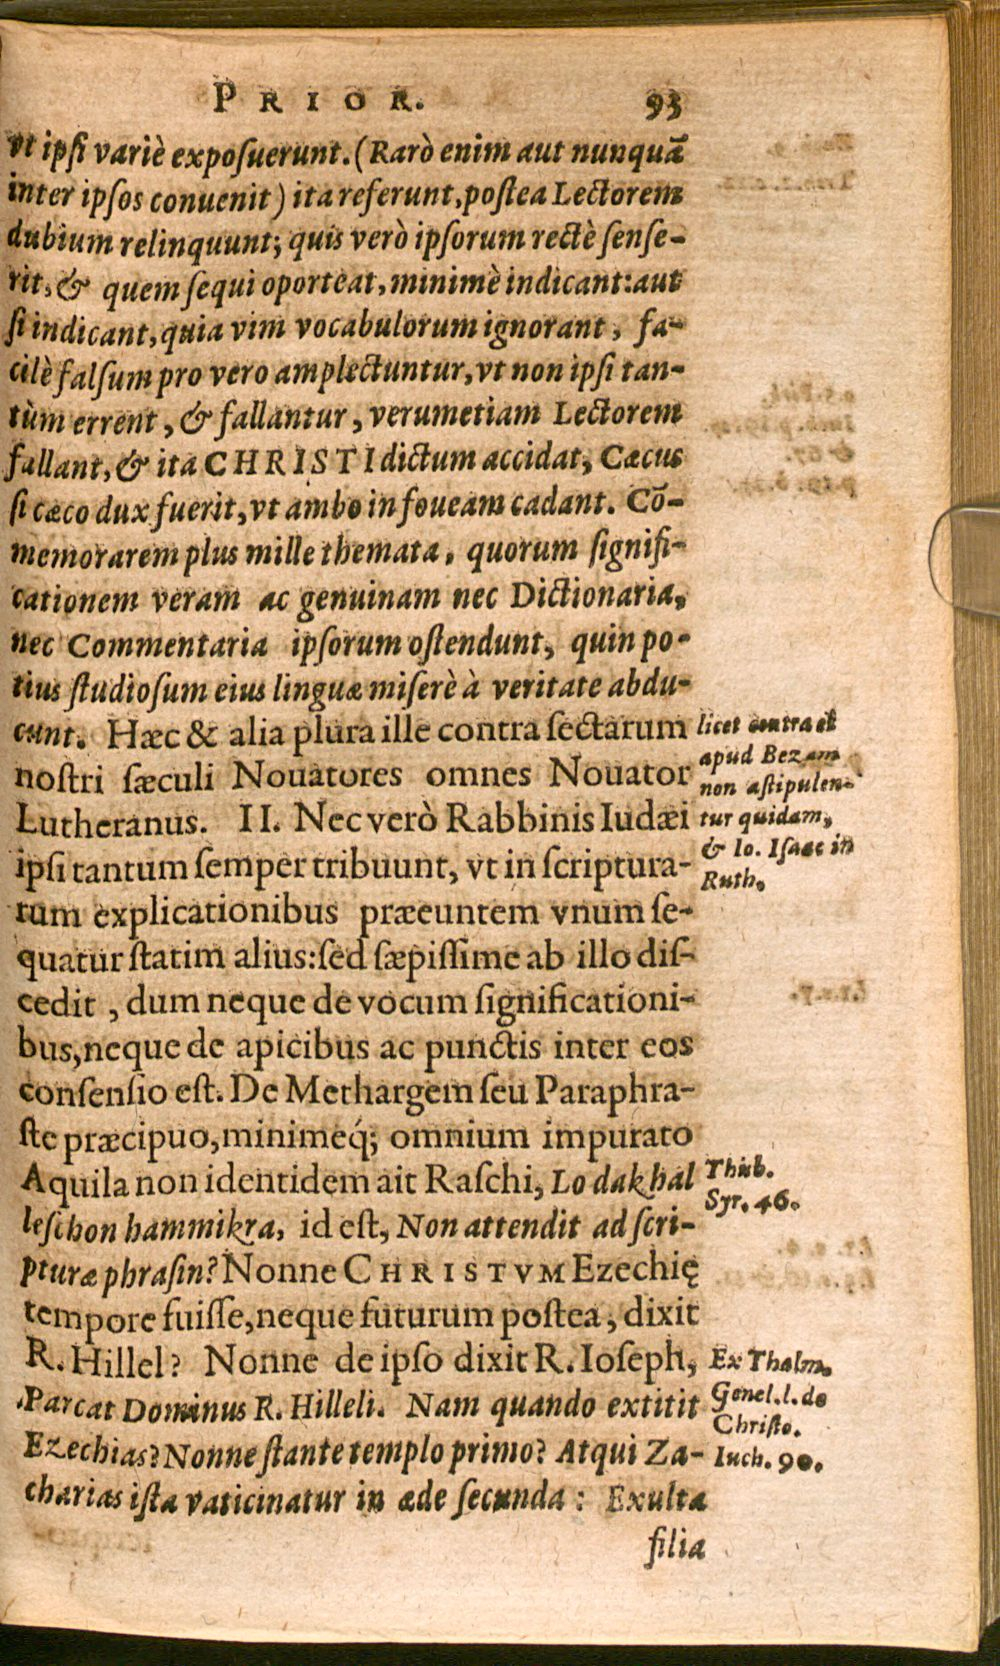 PRIOR. 93
vt ipsi variè exposuerunt. (Rarò enim aut nunquā
inter ipsos conuenit) ita referunt, postea Lectorem
dubium relinquunt; quis verò ipsorum rectè sense-
rit, & quem sequi oporteat, minimè indicant: aut
si indicant, quia vim vocabulorum ignorant, fa-
cilè falsum pro vero amplectuntur, vt non ipsi tan-
tùm errent, & fallantur, verumetiam Lectorem
fallant, & ita CHRISTI dictum accidat, Cæcus
si cæco dux fuerit, vt ambo in foueam cadant. Cō-
memorarem plus mille themata, quorum signifi-
cationem veram ac genuinam nec Dictionaria,
nec Commentaria ipsorum ostendunt, quin po-
tius studiosum eius linguæ miserè à veritate abdu-
cunt. Hæc & alia plura ille contra sectarum
nostri sæculi Nouatores omnes Nouator
Lutheranus. II. Nec verò Rabbinis Iudæi
ipsi tantum semper tribuunt, vt in scriptura-
rum explicationibus præeuntem vnum se-
quatur statim alius: sed sæpissime ab illo dis-
cedit, dum neque de vocum significationi-
bus, neque de apicibus ac punctis inter eos
consensio est. De Methargem seu Paraphra-
ste præcipuo, minimeq́; omnium impurato
Aquila non identidem ait Raschi, Lo dakhal
leschon hammikra, id est, Non attendit ad scri-
pturæ phrasin? Nonne CHRISTVM Ezechię
tempore fuisse, neque futurum postea, dixit
R. Hillel? Nonne de ipso dixit R. Ioseph,
Parcat Dominus R. Hilleli. Nam quando extitit
Ezechias? Nonne stante templo primo? Atqui Za-
charias ista vaticinatur in æde secunda: Exulta
filia
licet contra et
apud Bezam
non astipulen-
tur quidam,
& Io. Isaac in
Ruth.
Thub.
Syr. 46.
Ex Thalm.
Genel. l. de
Christo.
Iuch. 90.